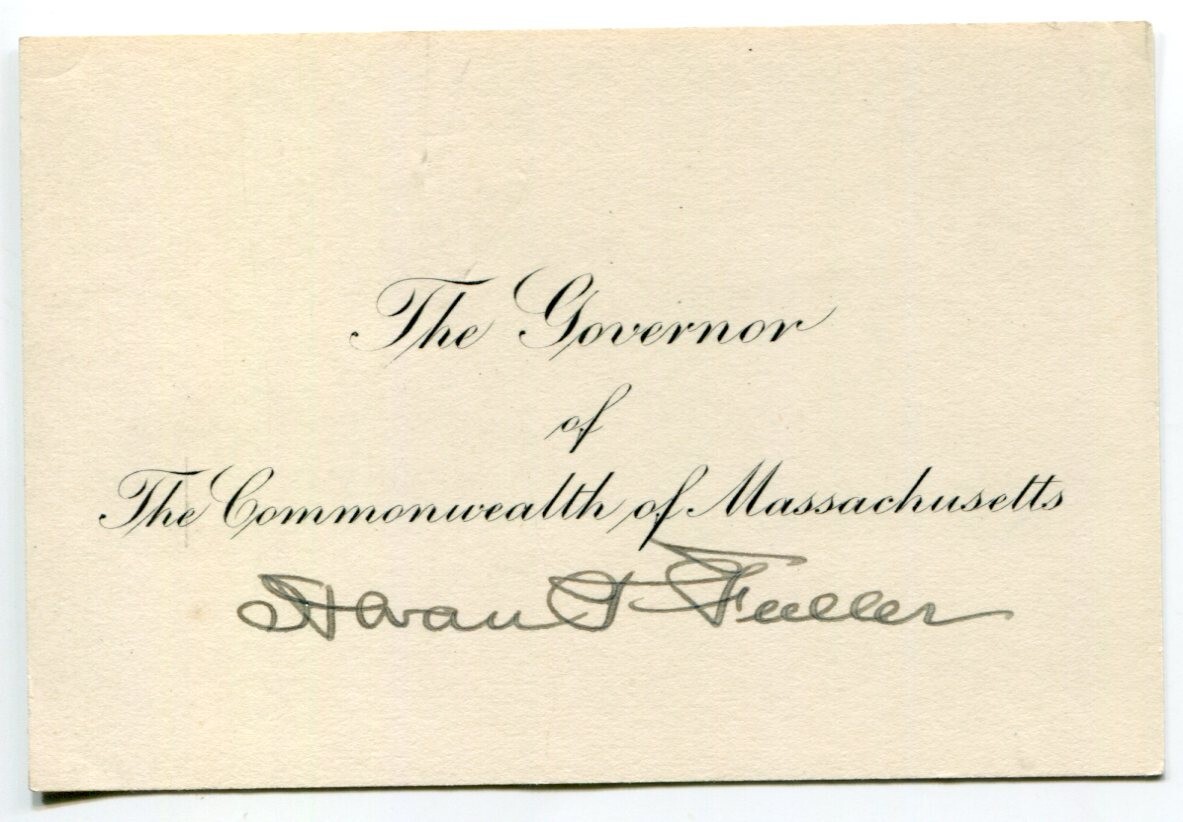 The Governor
of
The Commonwealth of Massachusetts
Alvan T Fuller